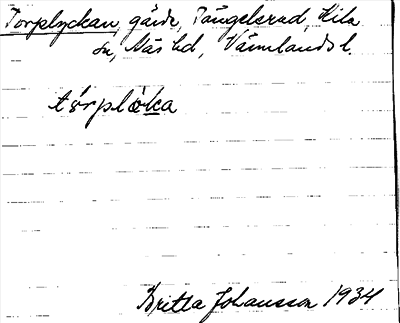 Torplyckan, gärde, Tångelsrud, Kila
sn, Näs hd, Värmlands l.
tórplò̀ka
Britta Johansson 1934